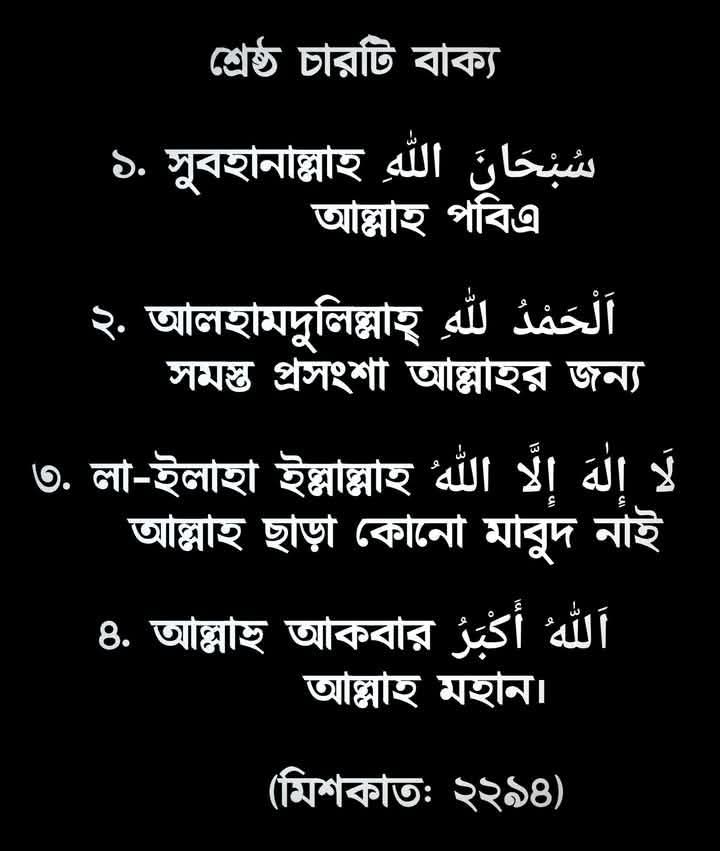 শ্রেষ্ঠ চারটি বাক্য
১. সুবহানাল্লাহ سُبْحَانَ اللّٰهِ
আল্লাহ পবিএ
২. আলহামদুলিল্লাহ্ اَلْحَمْدُ للّٰهِ
সমস্ত প্রসংশা আল্লাহর জন্য
৩. লা-ইলাহা ইল্লাল্লাহ لَا إِلٰهَ إِلَّا اللّٰهُ
আল্লাহ ছাড়া কোনো মাবুদ নাই
৪. আল্লাহু আকবার اَللّٰهُ أَكْبَرُ
আল্লাহ মহান।
(মিশকাত: ২২৯৪)